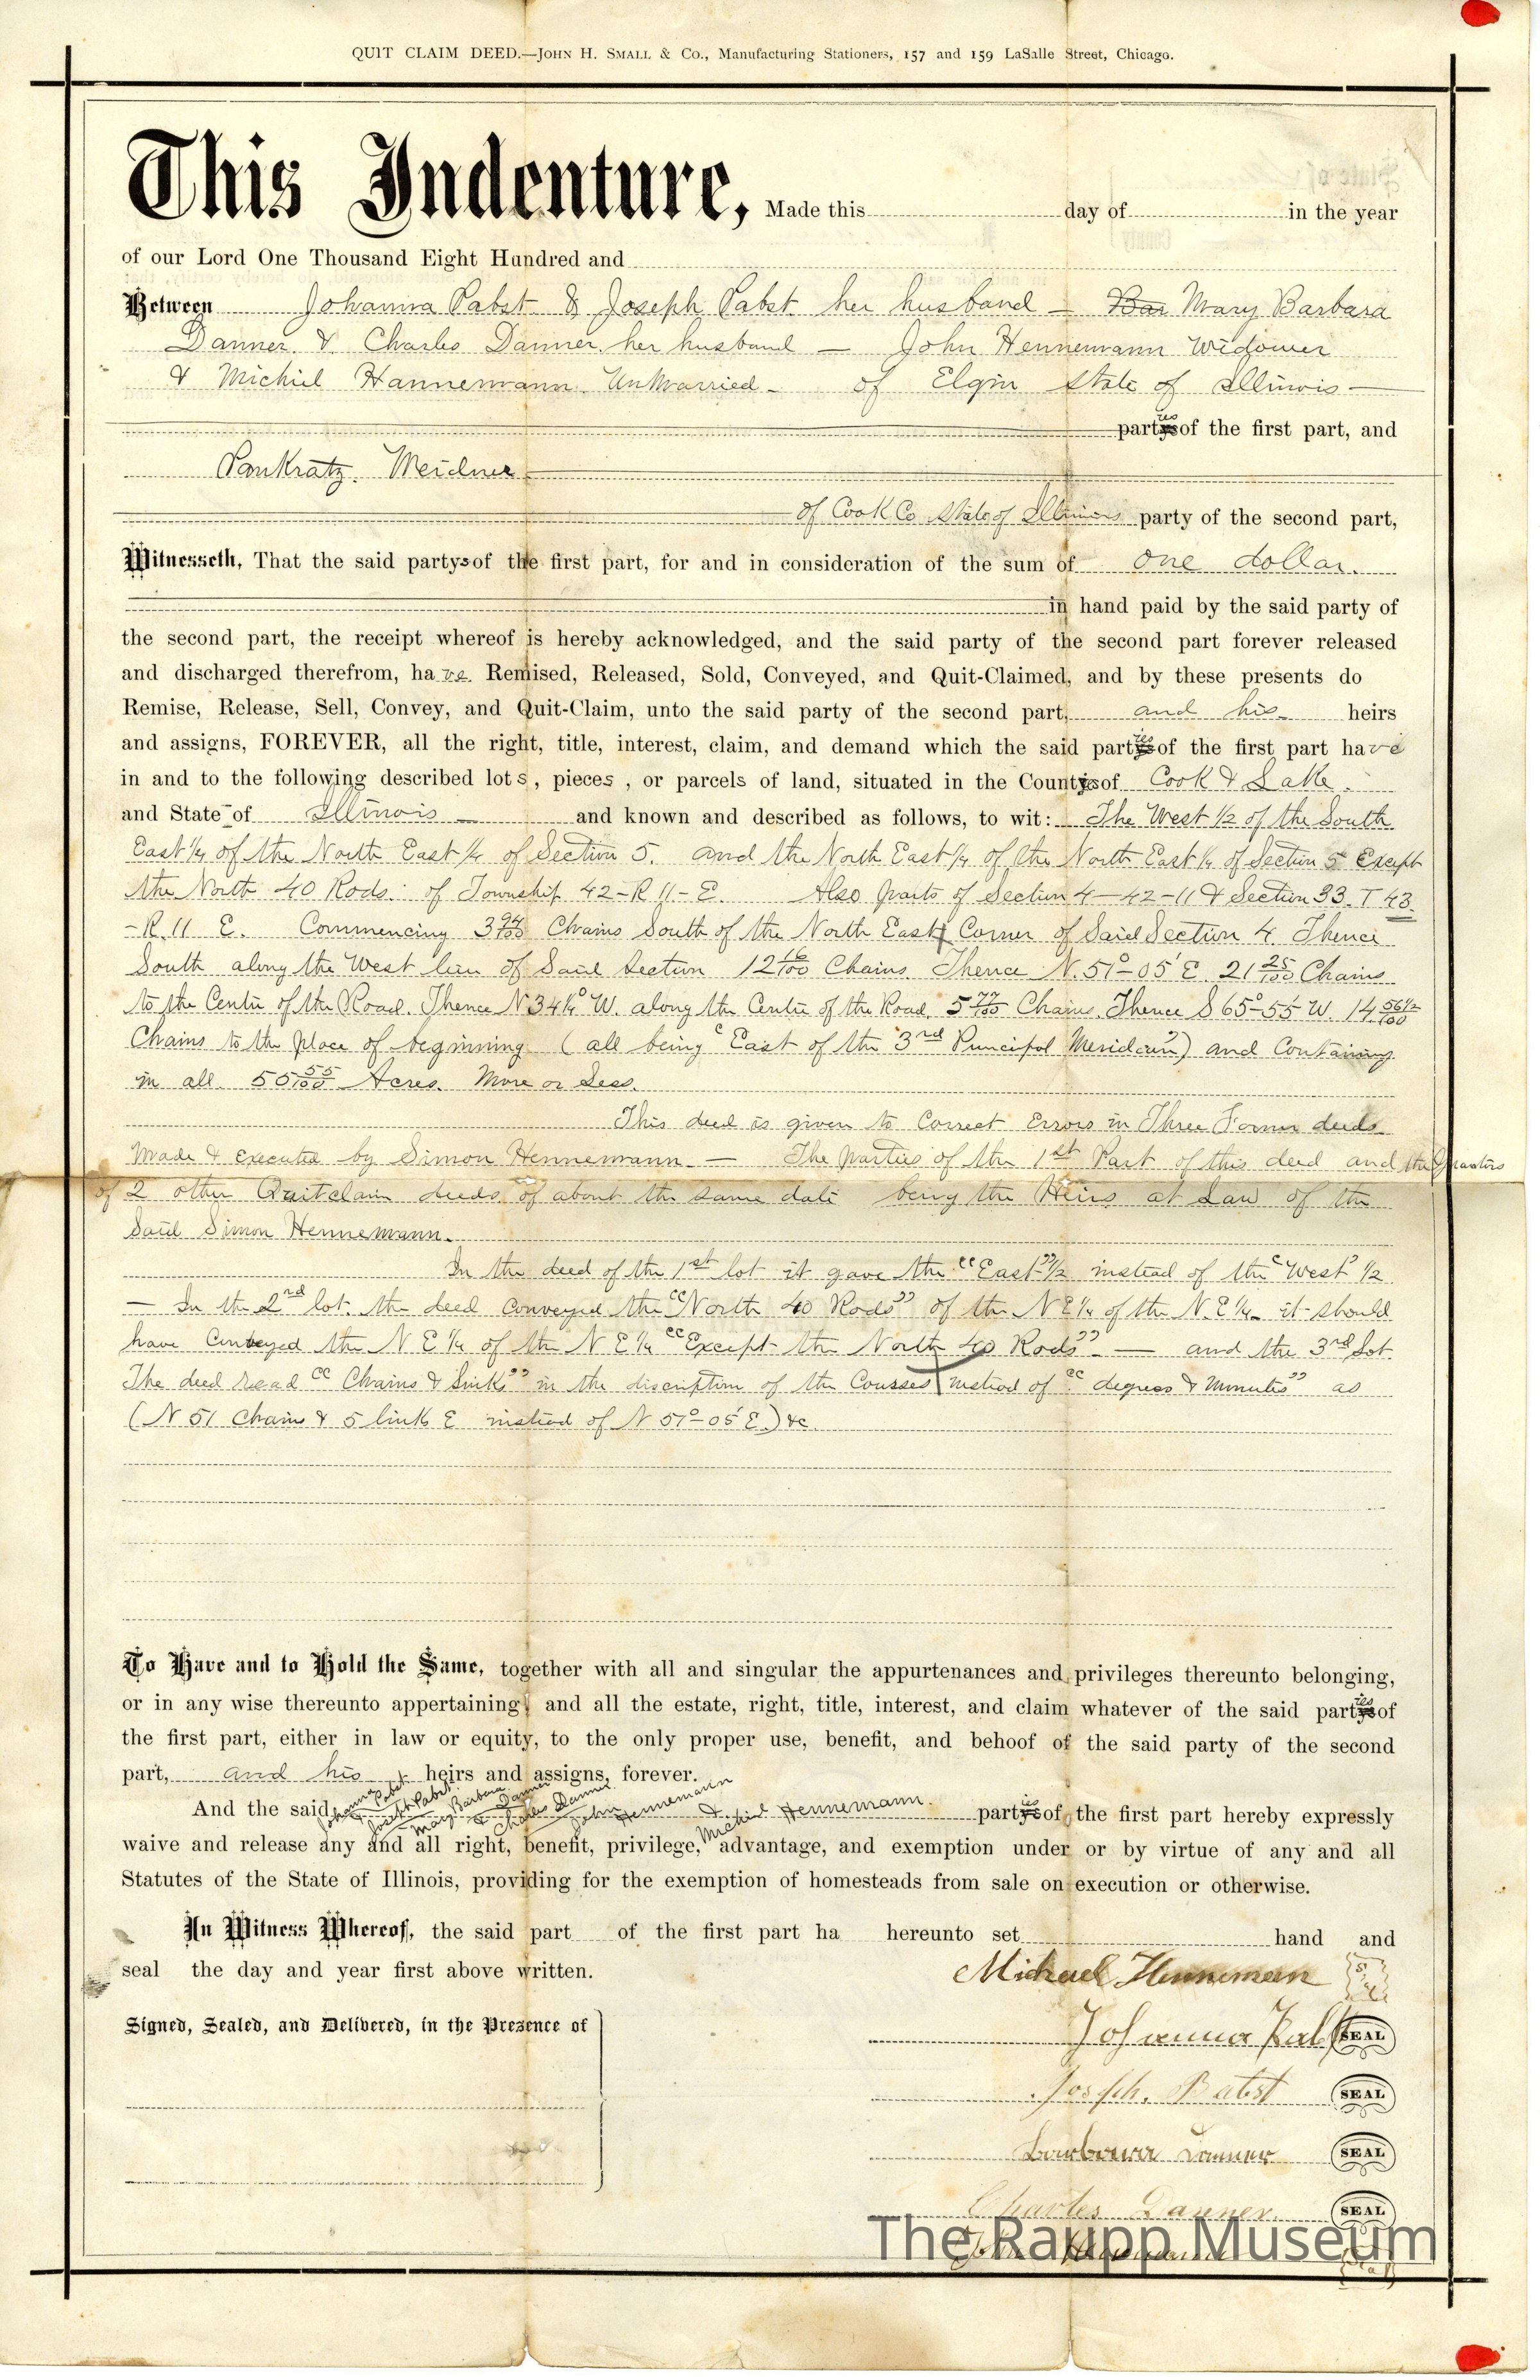 QUIT CLAIM DEED.—JOHN H. SMALL & CO., Manufacturing Stationers, 157 and 159 LaSalle Street, Chicago.
This Indenture, Made this day of in the year
of our Lord One Thousand Eight Hundred and
Between Johanna Pabst & Joseph Pabst her husband — Bar Mary Barbara
Danner & Charles Danner her husband — John Hennemann Widower
& Michiel Hannemann UnMarried — of Elgin State of Illinois —
parties of the first part, and
Pankratz Meidner
of Cook Co State of Illinois party of the second part,
Witnesseth, That the said partys of the first part, for and in consideration of the sum of one dollar.
in hand paid by the said party of
the second part, the receipt whereof is hereby acknowledged, and the said party of the second part forever released
and discharged therefrom, have Remised, Released, Sold, Conveyed, and Quit-Claimed, and by these presents do
Remise, Release, Sell, Convey, and Quit-Claim, unto the said party of the second part, and his heirs
and assigns, FOREVER, all the right, title, interest, claim, and demand which the said parties of the first part have
in and to the following described lots, pieces, or parcels of land, situated in the Counties of Cook & Lake.
and State of Illinois — and known and described as follows, to wit: The West 1/2 of the South
East 1/4 of the North East 1/4 of Section 5. and the North East 1/4 of the North East 1/4 of Section 5 Except
the North 40 Rods. of Township 42-R 11-E. Also parts of Section 4-42-11 & Section 33. T 43
-R. 11 E. Commencing 3 94/100 Chains South of the North East Corner of Said Section 4 Thence
South along the West line of Said Section 12 16/100 Chains Thence N. 51°-05' E 21 25/100 Chains
to the Centre of the Road. Thence N 34 1/4° W. along the Centre of the Road. 5 77/100 Chains. Thence S 65°-55' W. 14 56 1/2/100
Chains to the place of beginning (all being "East of the 3rd Principal Meridian") and Containing
in all. 55 55/100 Acres. More or Less.
This deed is given to Correct Errors in Three Former deeds
Made & executed by Simon Hennemann — The parties of the 1st Part of this deed and the Grantors
of 2 other Quitclaim deeds of about the same date being the Heirs at Law of the
Said Simon Hennemann.
In the deed of the 1st lot it gave the "East" 1/2 instead of the "West" 1/2
— In the 2rd lot. the deed conveyed the "North 40 Rods" of the N E 1/4 of the N. E 1/4. it should
have Conveyed the N E 1/4 of the N E 1/4 "Except the North 40 Rods" — and the 3rd Lot.
The deed read "Chains & Links" in the discription of the Courses instead of "degrees & Minutes" as
(N 51 Chains & 5 links E instead of N 51°-05' E.) &c.
To Have and to Hold the Same, together with all and singular the appurtenances and privileges thereunto belonging,
or in any wise thereunto appertaining; and all the estate, right, title, interest, and claim whatever of the said parties of
the first part, either in law or equity, to the only proper use, benefit, and behoof of the said party of the second
part, and his heirs and assigns, forever.
And the said Johanna Pabst & Joseph Pabst Mary Barbara Danner & Charles Danner John Hennemann & Michiel Hennemann parties of the first part hereby expressly
waive and release any and all right, benefit, privilege, advantage, and exemption under or by virtue of any and all
Statutes of the State of Illinois, providing for the exemption of homesteads from sale on execution or otherwise.
In Witness Whereof, the said part of the first part ha hereunto set hand and
seal the day and year first above written.
Michael Hennemann
Signed, Sealed, and Delivered, in the Presence of
Johanna Pabst SEAL
Joseph. Pabst SEAL
Barbara Danner SEAL
Charles Danner. SEAL
John Hennemann
The Raupp Museum